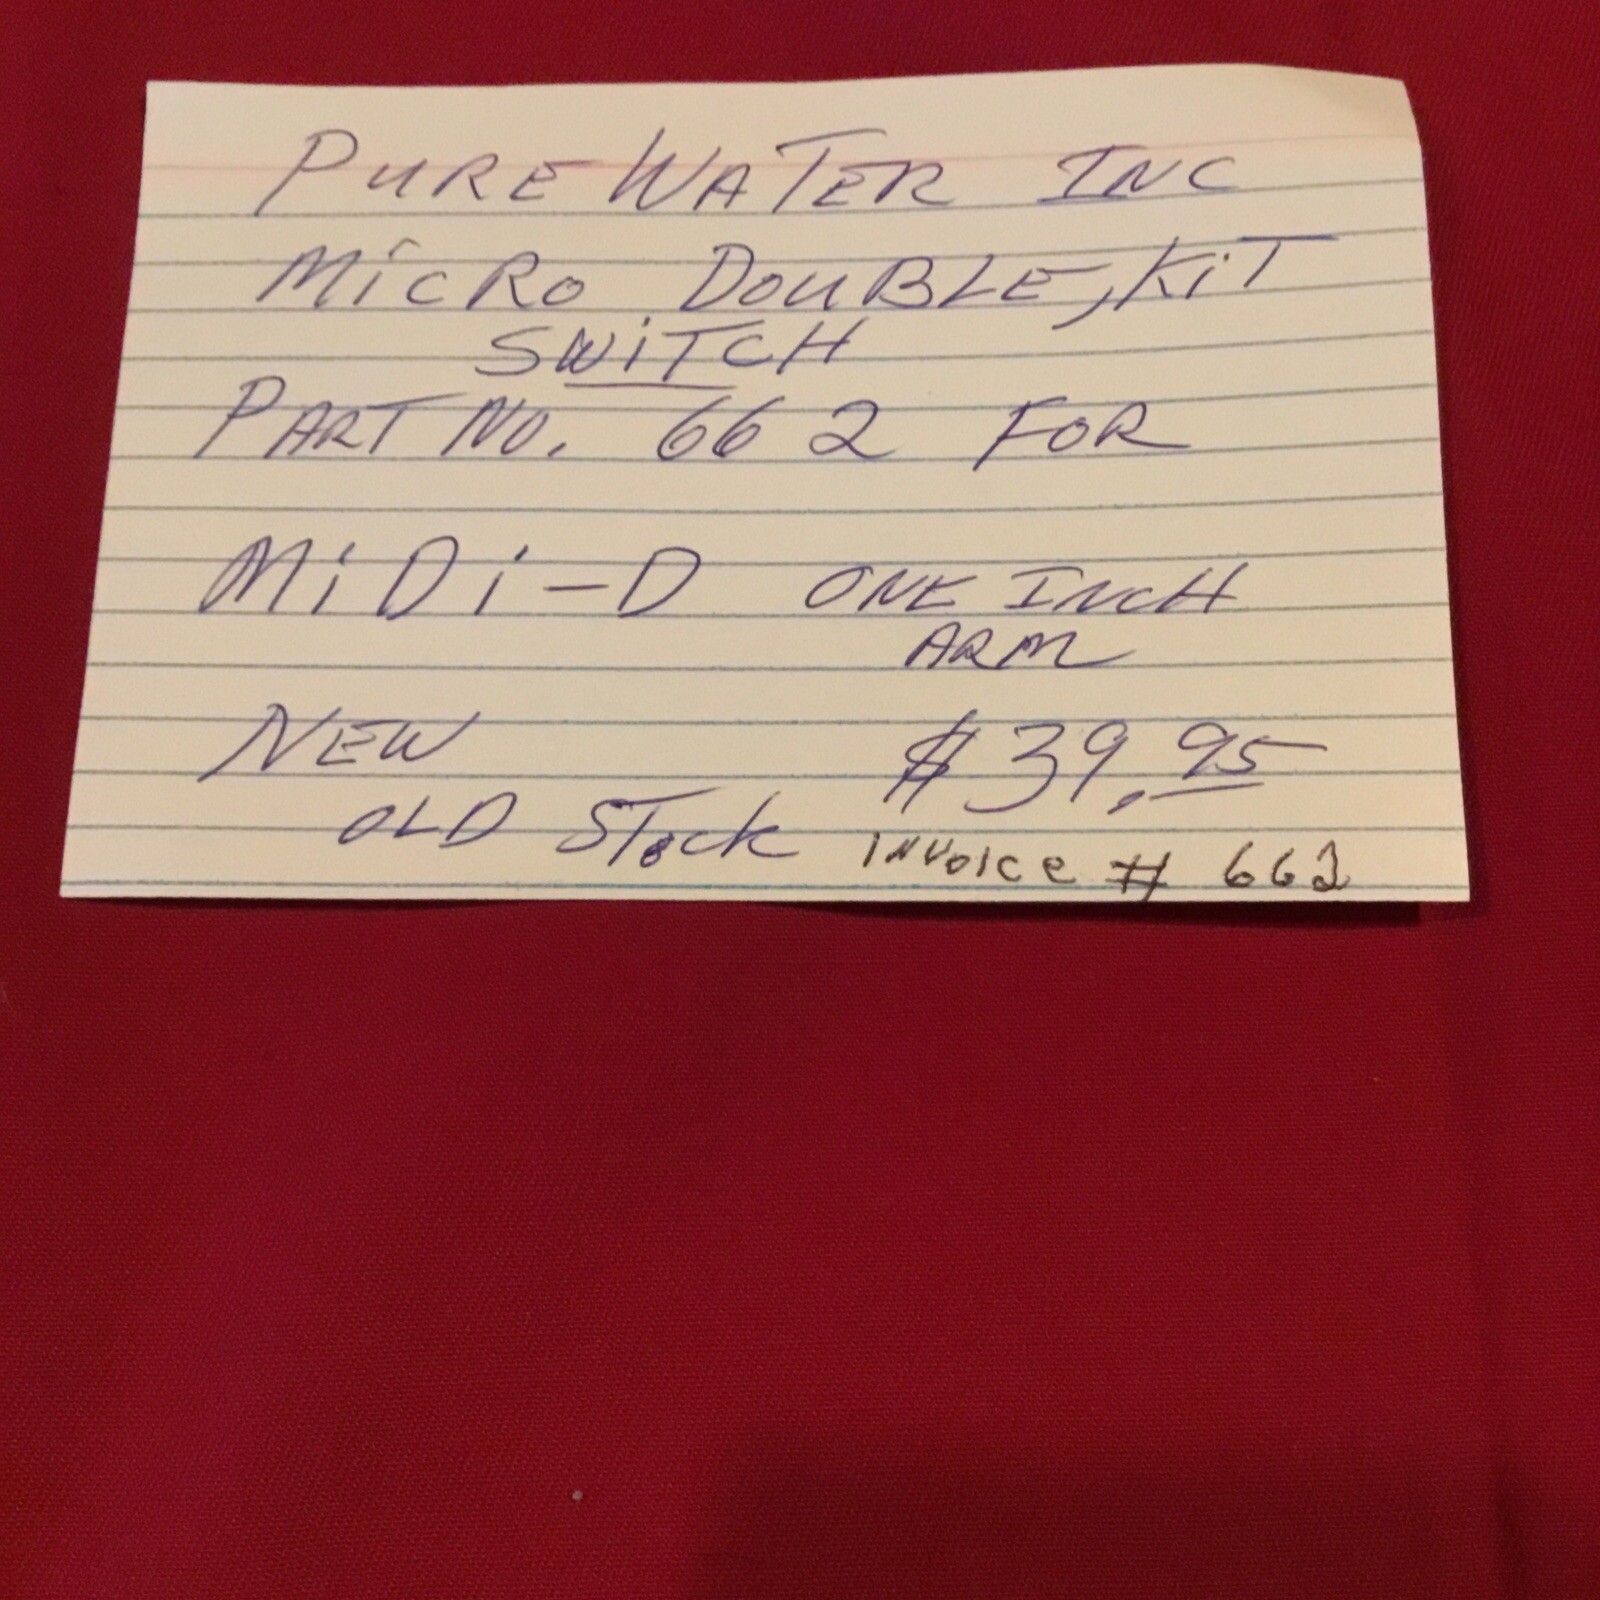 PURE WATER INC
MiCRO DOUBLE, KiT
SWiTCH
PART NO. 662 FOR
MiDi-D ONE INCH
ARM
NEW $39.95
OLD STock invoice # 662